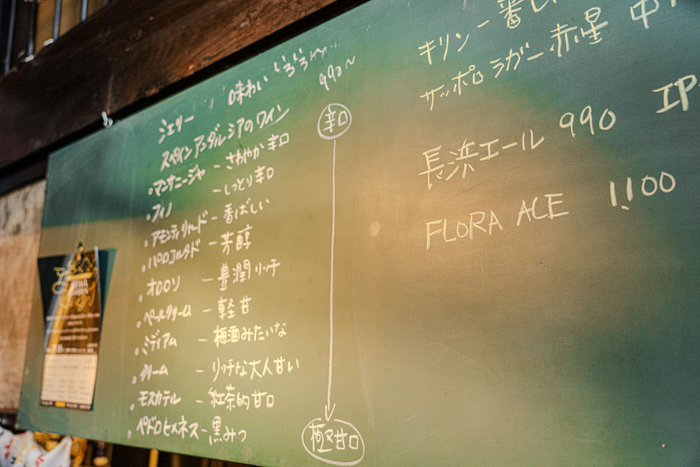 シェリー 味わいいろいろ〜… 990〜
スペインアンダルシアのワイン
・マンサニージャ – さわやか辛口
・フィノ – しっとり辛口
・アモンティリャード – 香ばしい
・パロコルタド – 芳醇
・オロロソ – 豊潤リッチ
・ペールクリーム – 軽甘
・ミディアム – 梅酒みたいな
・クリーム – リッチな大人甘い
・モスカテル – 紅茶的甘口
・ペドロヒメネス – 黒みつ
辛口
極甘口
キリン一番し
サッポロラガー赤星 中
長浜エール 990 IP
FLORA ACE 1,100